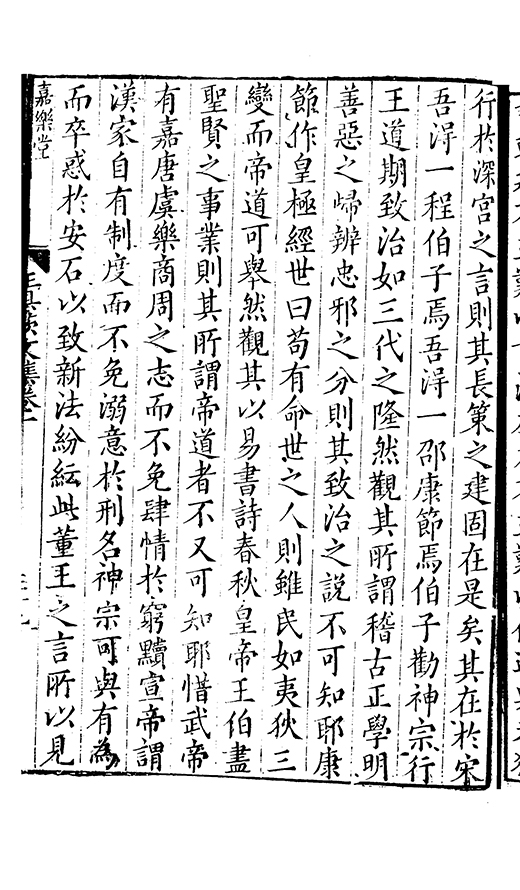 行於深宫之言則其長策之建固在是矣其在於宋
吾淂一程伯子焉吾淂一邵康節焉伯子勸神宗行
王道期致治如三代之隆然觀其所謂稽古正學明
善惡之歸辨忠邪之分則其致治之說不可知耶康
節作皇極經世曰苟有命世之人則雖民如夷狄三
變而帝道可舉然觀其以易書詩春秋皇帝王伯盡
聖賢之事業則其所謂帝道者不又可知耶惜武帝
有嘉唐虞樂商周之志而不免肆情於窮黷宣帝謂
漢家自有制度而不免溺意於刑名神宗可與有為
而卒惑於安石以致新法紛紜此董王之言所以見
嘉樂堂
文集卷二